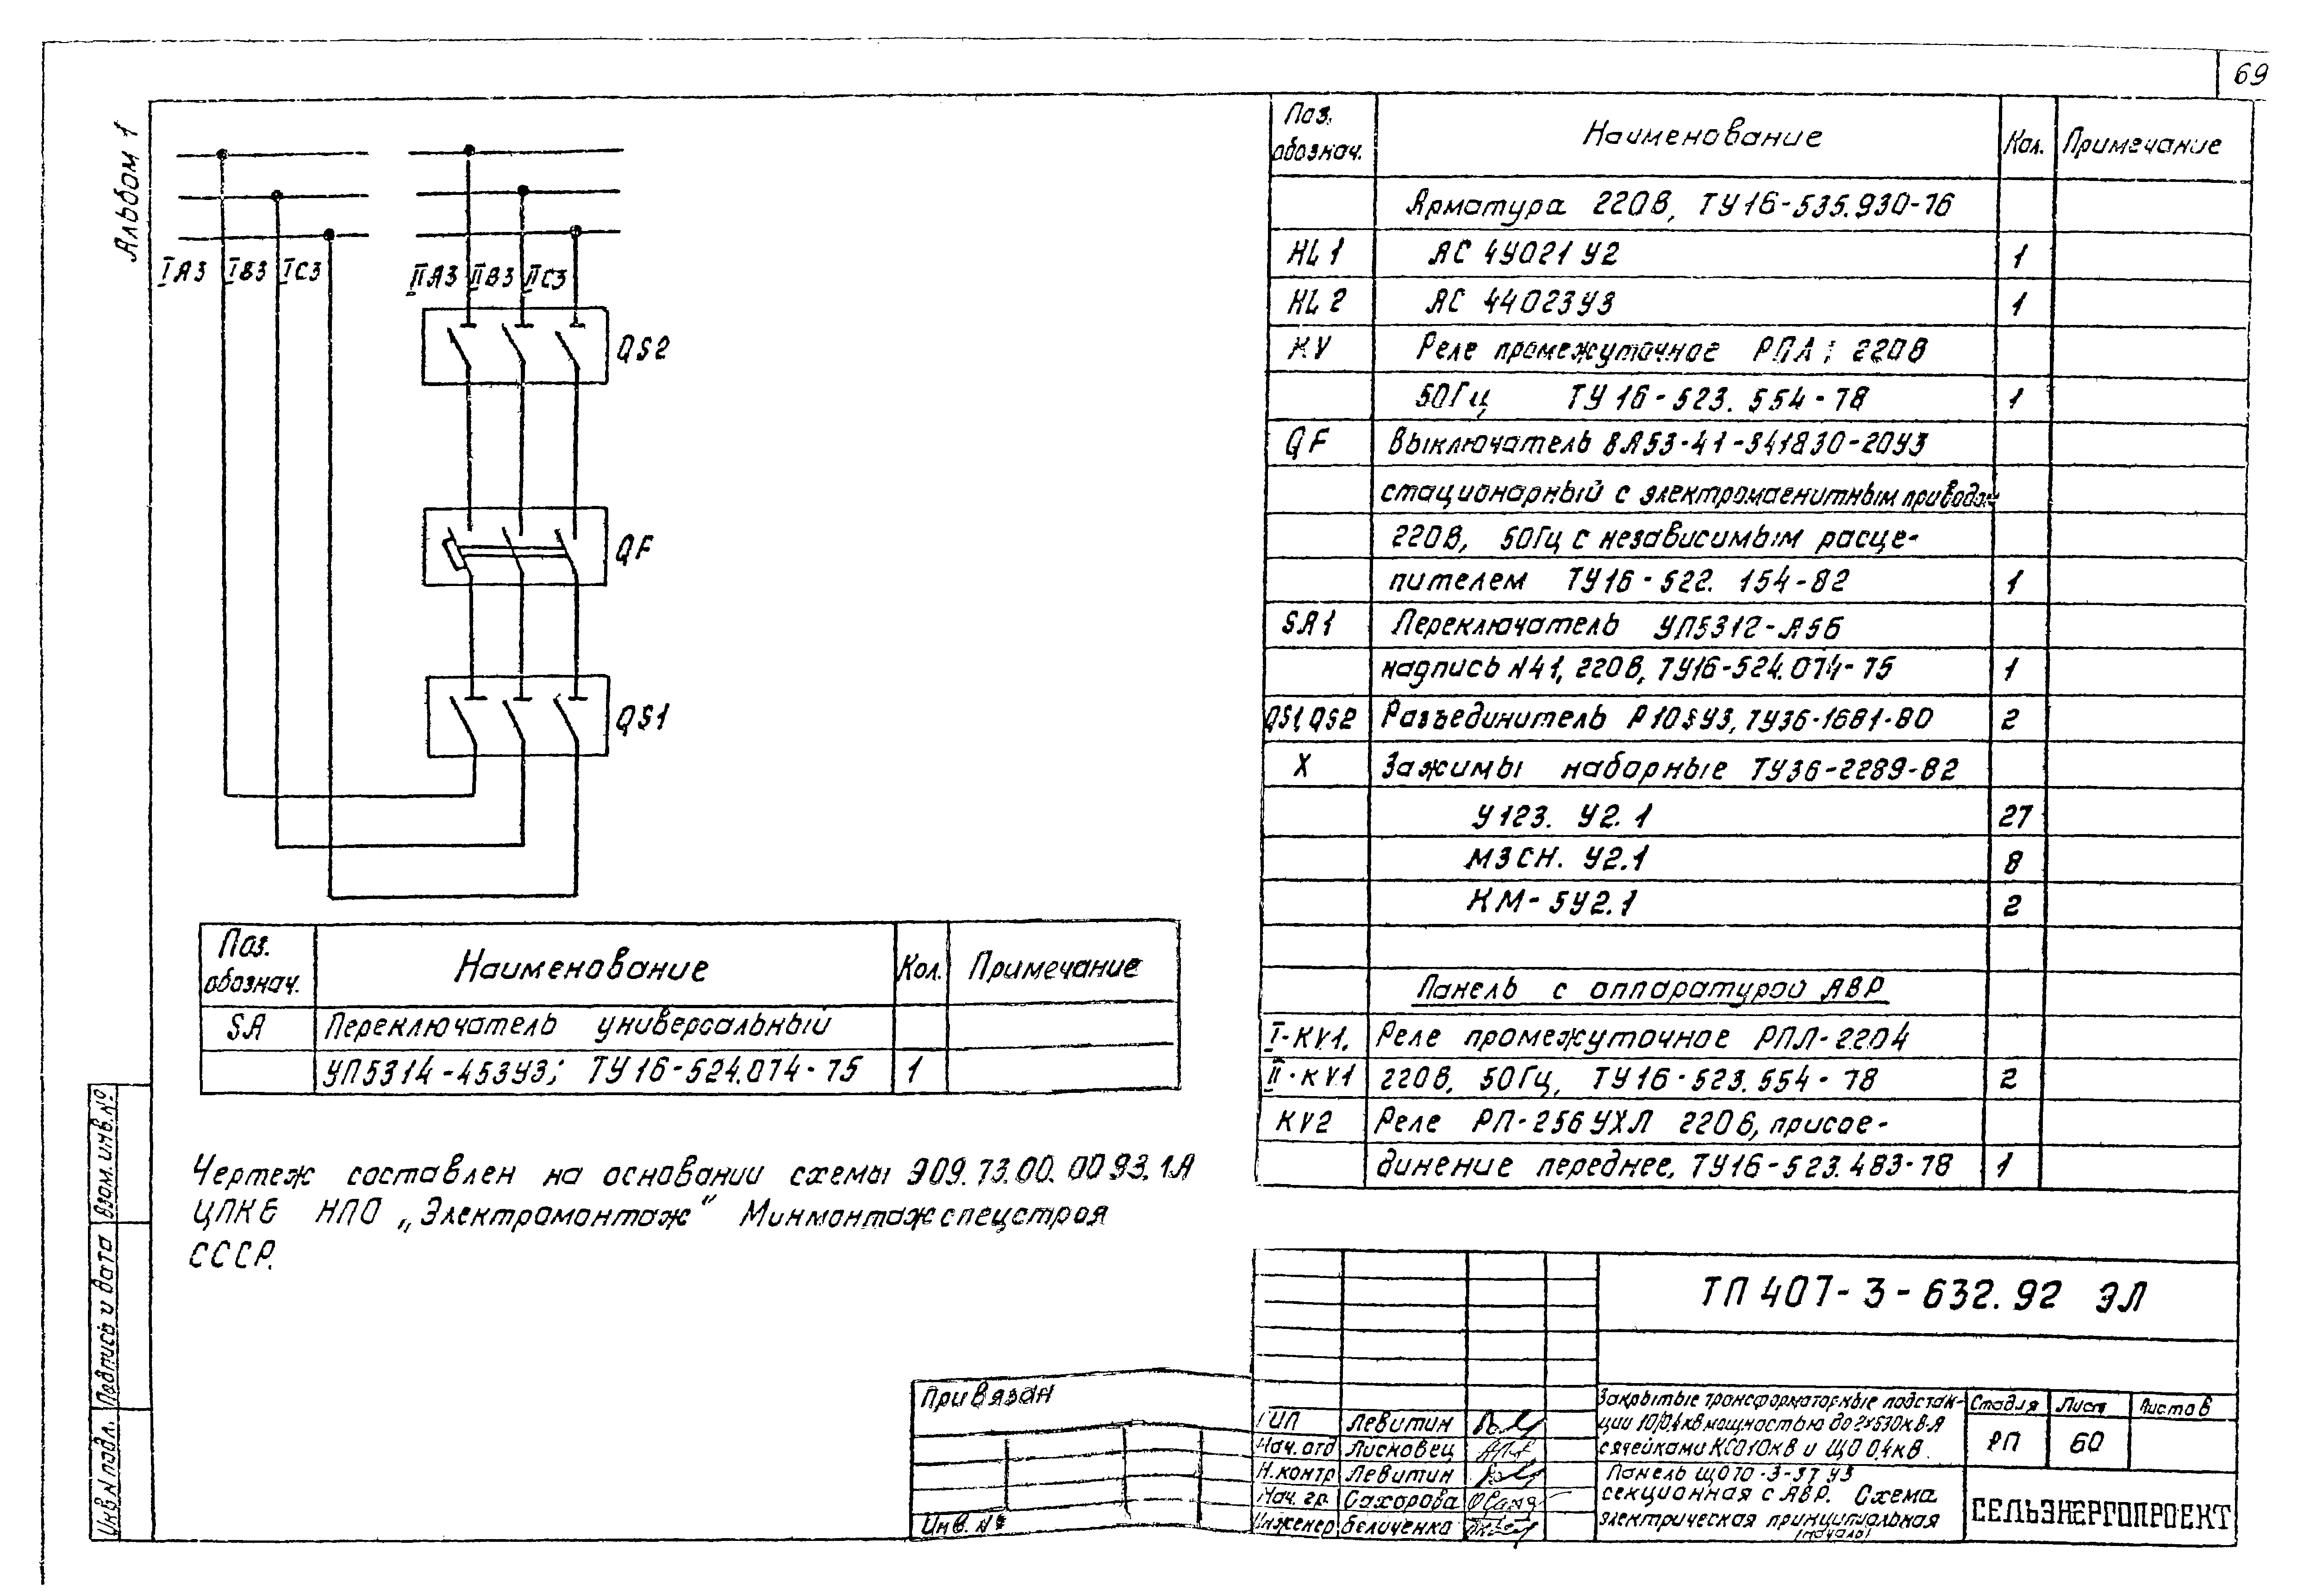 69
Альбом 1
IА3 IВ3 IС3
IIА3 IIВ3 IIС3
QS2
QF
QS1
Поз. обознач. Наименование Кол. Примечание
SA Переключатель универсальный
УП5314-45ЗУ3; ТУ16-524.074-75 1
Чертеж составлен на основании схемы Э09.73.00.0093.1А
ЦПКБ НПО „Электромонтаж“ Минмонтажспецстроя
СССР.
Поз. обознач. Наименование Кол. Примечание
Арматура 220В, ТУ16-535.930-76
HL1 АС 4У021У2 1
HL2 АС 44023У3 1
KV Реле промежуточное РПЛ; 220В
50Гц ТУ16-523.554-78 1
QF Выключатель ВА53-41-341830-20У3
стационарный с электромагнитным приводом
220В, 50Гц с независимым расце-
пителем ТУ16-522.154-82 1
SA1 Переключатель УП5312-А56
надпись N41, 220В, ТУ16-524.074-75 1
QS1, QS2 Разъединитель Р105У3, ТУ36-1681-80 2
X Зажимы наборные ТУ36-2289-82
У123. У2.1 27
МЗСН. У2.1 8
КМ-5У2.1 2
Панель с аппаратурой АВР
I-KV1. Реле промежуточное РПЛ-2204
II-KV1 220В, 50Гц, ТУ16-523.554-78 2
KV2 Реле РП-256УХЛ 220В, присое-
динение переднее, ТУ16-523.483-78 1
ТП 407-3-632.92 ЭЛ
Закрытые трансформаторные подстан-
ции 10/0,4кВ мощностью до 2×630кВ·А
с ячейками КСО10кВ и ЩО 0,4кВ.
Стадия Лист Листов
РП 60
Панель ЩО70-3-37 У3
секционная с АВР. Схема
электрическая принципиальная
(начало)
СЕЛЬЭНЕРГОПРОЕКТ
ГИП Левитин
Нач. отд Лисковец
Н.контр Левитин
Нач. гр. Сахорова
Инженер Беличенко
Привязан
Инв. №
Взам. инв. №
Подпись и дата
Инв. N подл.